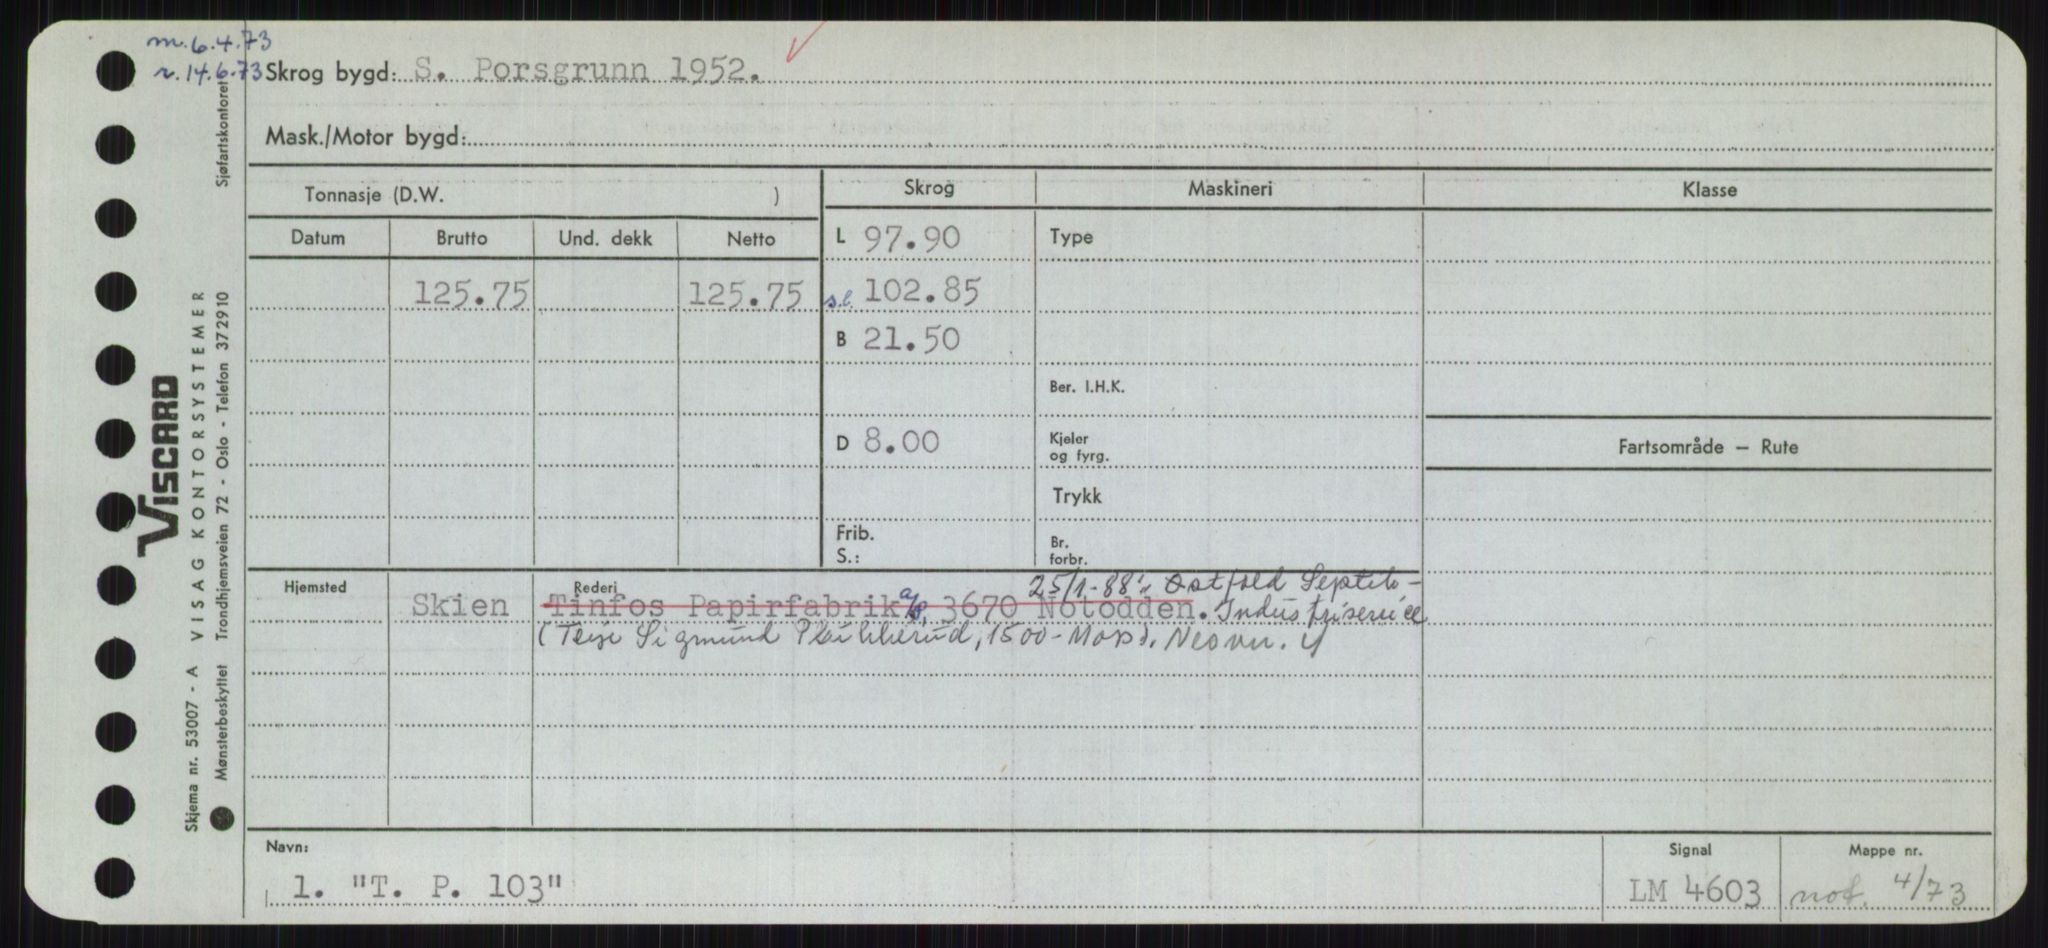 m. 6.4.73
r. 14.6.73 Skrog bygd: S. Porsgrunn 1952.
Mask./Motor bygd:
Tonnasje (D.W. )
Skrog Maskineri Klasse
Datum Brutto Und. dekk Netto
L 97.90 Type
125.75 125.75 s.l. 102.85
B 21.50
Ber. I.H.K.
D 8.00 Kjeler og fyrg.
Fartsområde — Rute
Trykk
Frib. S.:
Br. forbr.
Hjemsted Rederi 25/1-88: Østfold Septik-
Skien Tinfos Papirfabrik a/s, 3670 Notodden. Industriservice
(Terje Sigmund 1500 - Moss).
Navn: Signal Mappe nr.
1. "T. P. 103" LM 4603 not. 4/73
Skjema nr. 53007 - A VISAG KONTORSYSTEMER Sjøfartskontoret
Mønsterbeskyttet Trondhjemsveien 72 - Oslo - Telefon 372910
VISCARD